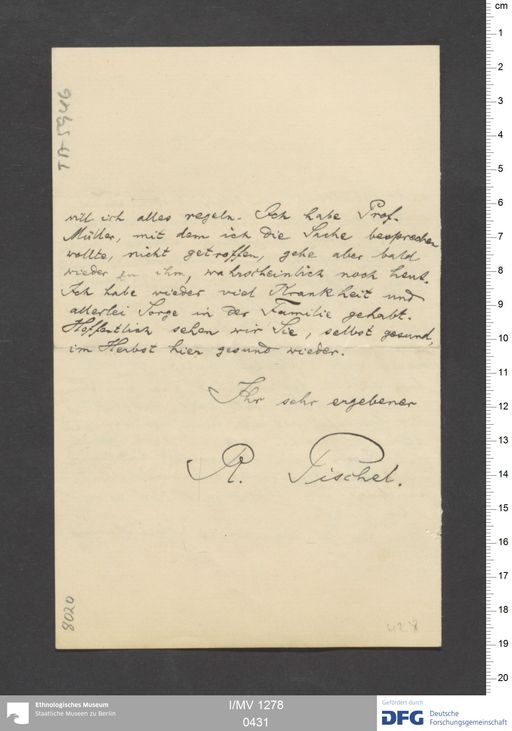 TA 5946
will ich alles regeln. Ich habe Prof.
Müller, mit dem ich die Sache besprechen
wollte, nicht getroffen, gehe aber bald
wieder zu ihm, wahrscheinlich noch heut.
Ich habe wieder viel Krankheit und
allerlei Sorge in der Familie gehabt.
Hoffentlich sehen wir Sie, selbst gesund,
im Herbst hier gesund wieder.
Ihr sehr ergebener
R. Pischel.
8020
428
cm
1
2
3
4
5
6
7
8
9
10
11
12
13
14
15
16
17
18
19
20
Ethnologisches Museum
Staatliche Museen zu Berlin
I/MV 1278
0431
Gefördert durch
DFG
Deutsche
Forschungsgemeinschaft